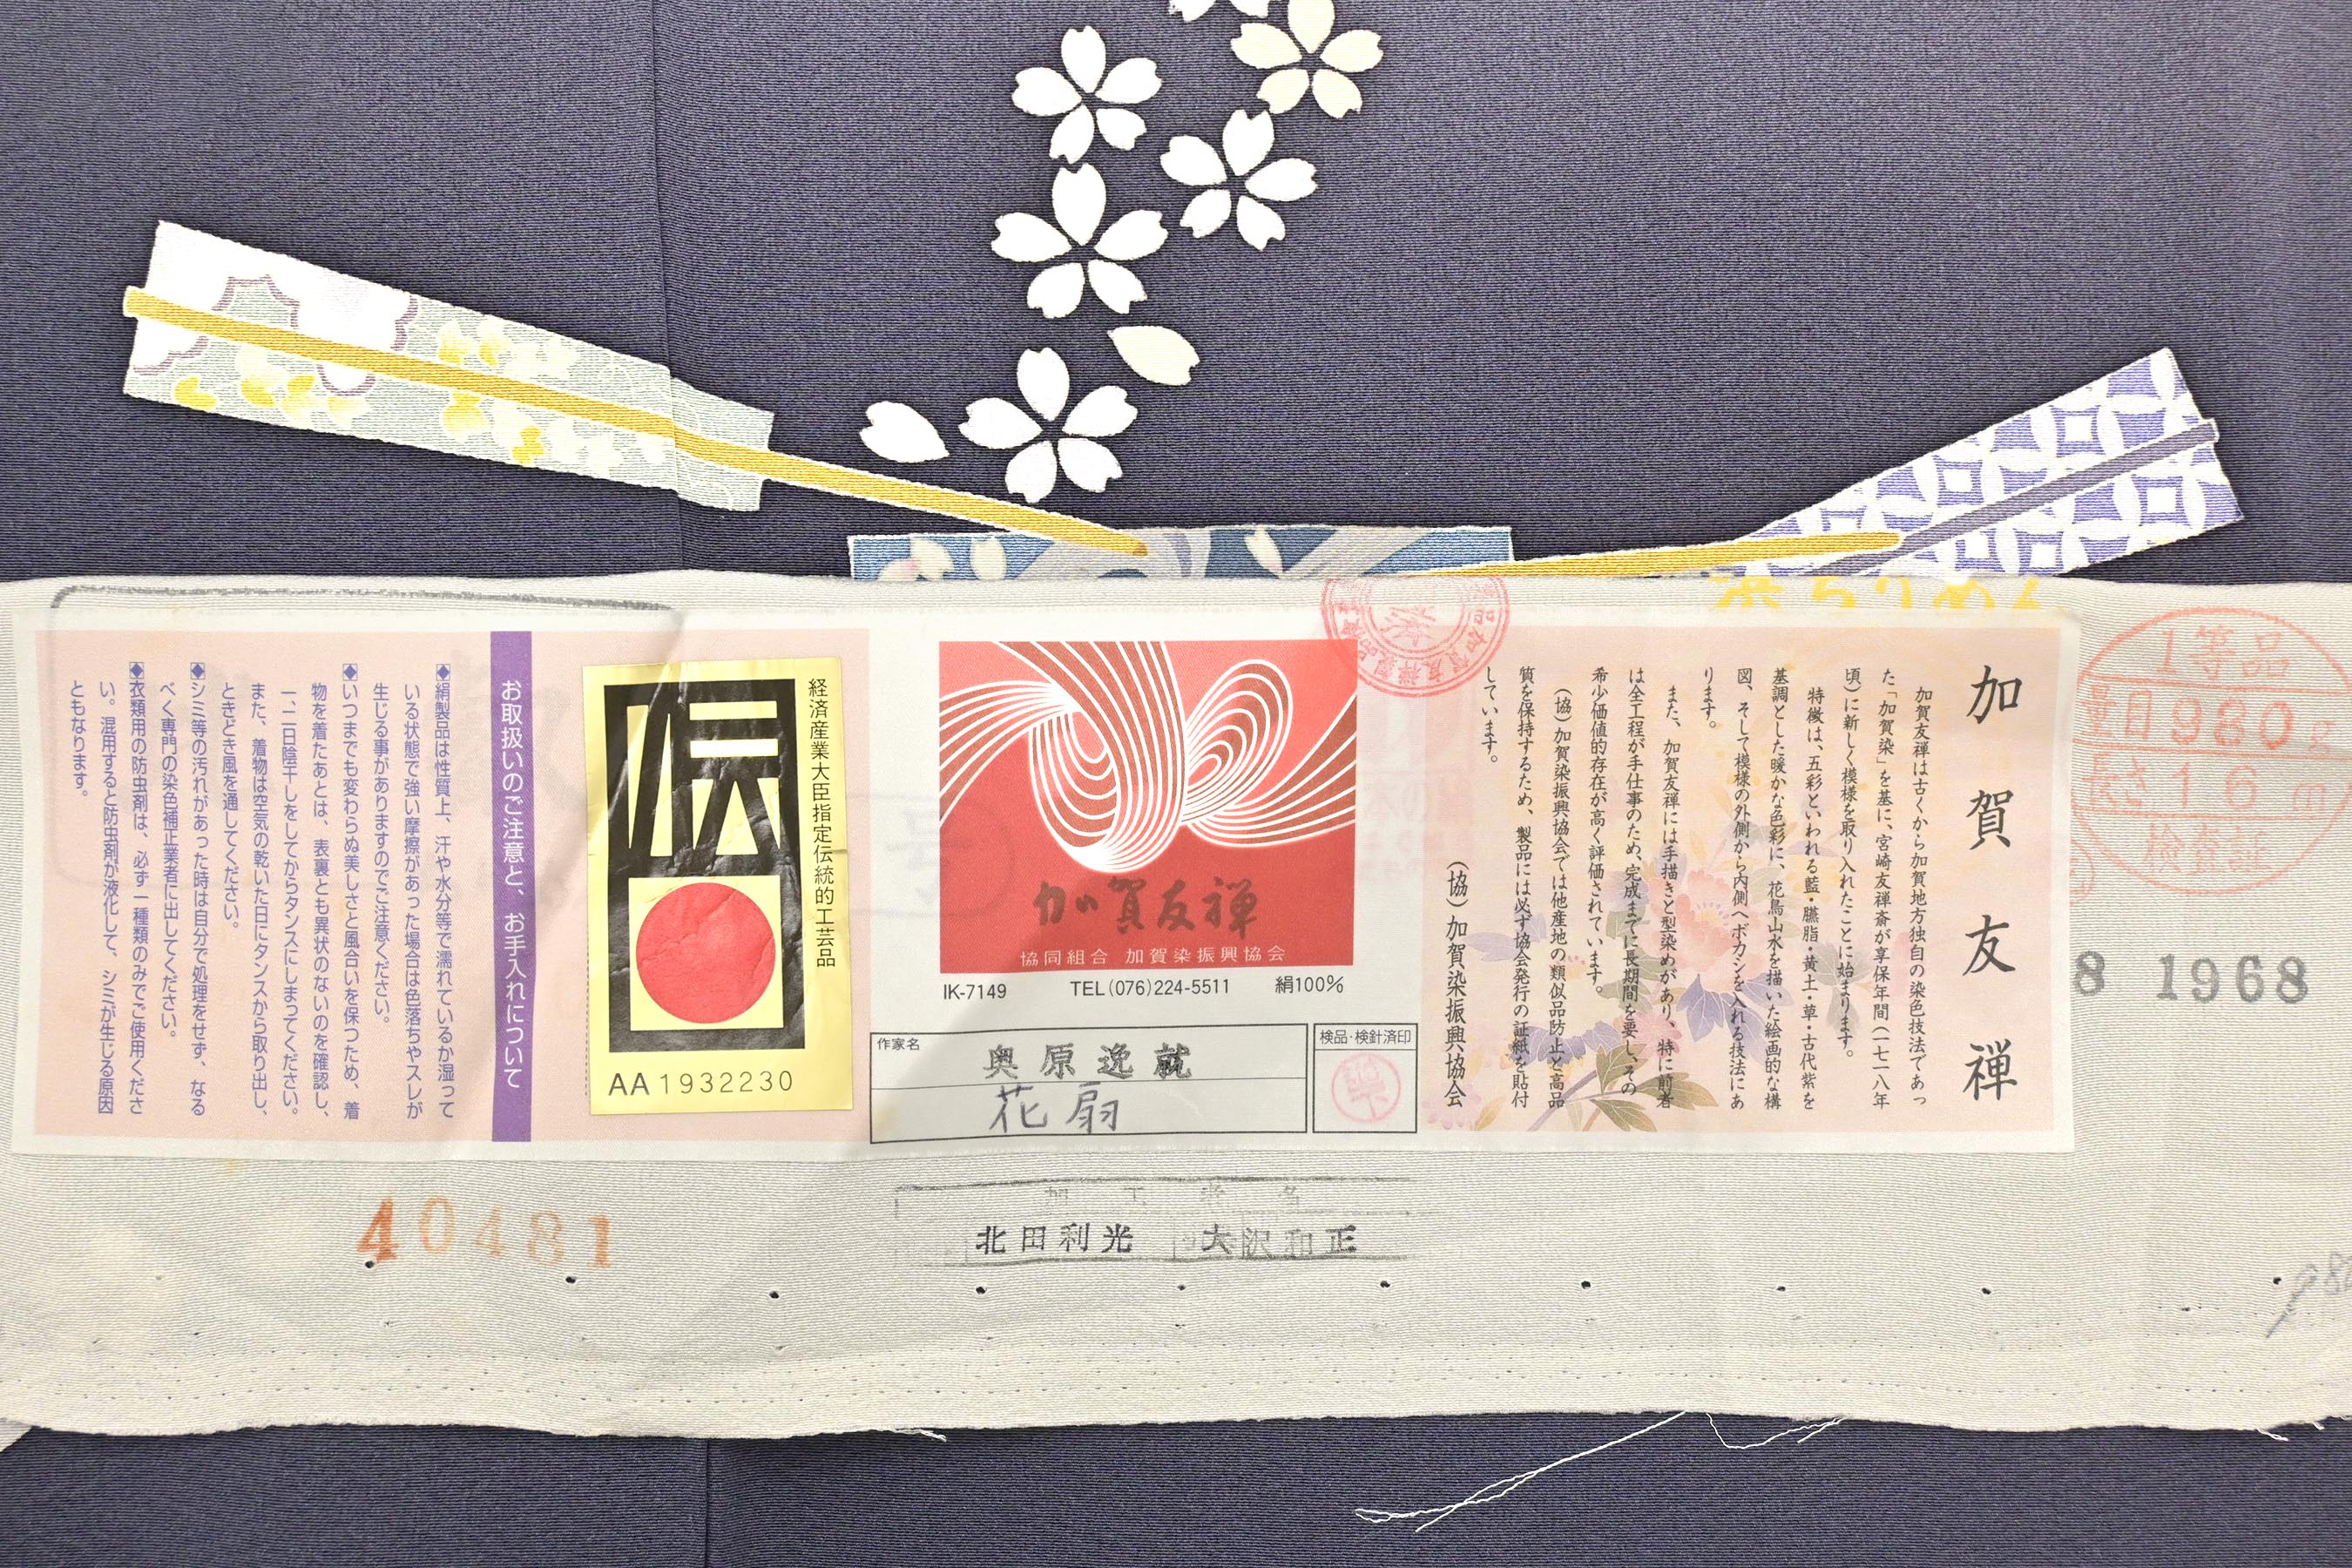 加賀友禅
加賀友禅は古くから加賀地方独自の染色技法であっ
た「加賀染」を基に、宮崎友禅斎が享保年間(一七一八年
頃)に新しく模様を取り入れたことに始まります。
特徴は、五彩といわれる藍・臙脂・黄土・草・古代紫を
基調とした暖かな色彩に、花鳥山水を描いた絵画的な構
図、そして模様の外側から内側へボカシを入れる技法にあ
ります。
また、加賀友禅には手描きと型染めがあり、特に前者
は全工程が手仕事のため、完成までに長期間を要し、その
希少価値的存在が高く評価されています。
(協)加賀染振興協会では他産地の類似品防止と高品
質を保持するため、製品には必ず協会発行の証紙を貼付
しています。
(協)加賀染振興協会
加賀友禅
協同組合 加賀染振興協会
IK-7149 TEL(076)224-5511 絹100%
作家名
奥原逸就
花扇
検品・検針済印
経済産業大臣指定伝統的工芸品
伝
AA1932230
お取扱いのご注意と、お手入れについて
◆絹製品は性質上、汗や水分等で濡れているか湿って
いる状態で強い摩擦があった場合は色落ちやスレが
生じる事がありますのでご注意ください。
◆いつまでも変わらぬ美しさと風合いを保つため、着
物を着たあとは、表裏とも異状のないのを確認し、
一、二日陰干しをしてからタンスにしまってください。
また、着物は空気の乾いた日にタンスから取り出し、
ときどき風を通してください。
◆シミ等の汚れがあった時は自分で処理をせず、なる
べく専門の染色補正業者に出してください。
◆衣類用の防虫剤は、必ず一種類のみでご使用くださ
い。混用すると防虫剤が液化して、シミが生じる原因
ともなります。
1等品
量目980g
長さ16m
8 1968
40481
北田利光 大沢和正